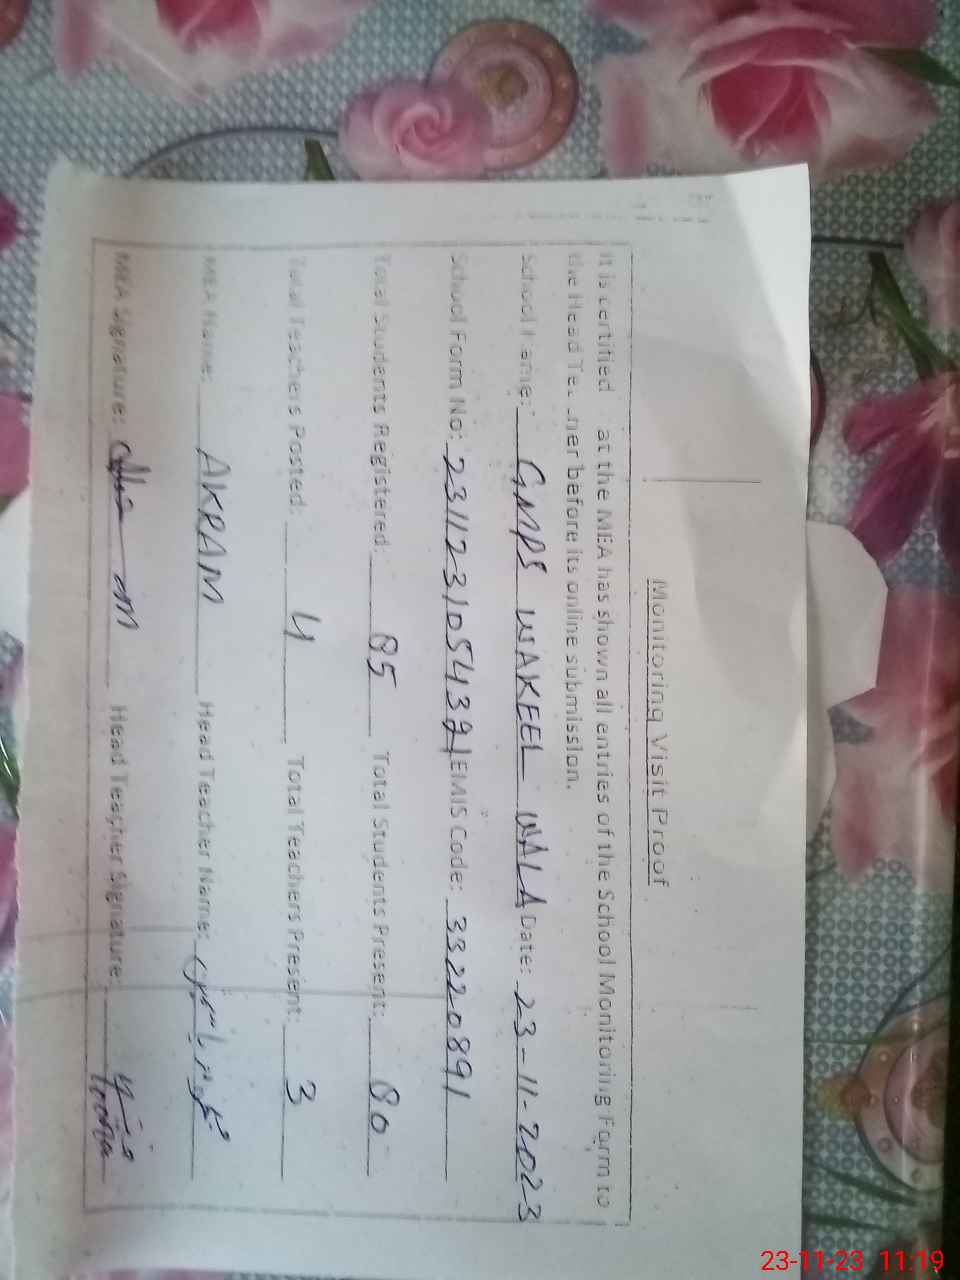 Monitoring Visit Proof
It is certified at the MEA has shown all entries of the School Monitoring Form to
the Head Te ner before its online submission.
School Name: GMPS WAKEEL WALA Date: 23-11-2023
School Form No: EMIS Code: 33220891
Total Students Registered: 85 Total Students Present: 80
Total Teachers Posted: 4 Total Teachers Present: 3
MEA Name: AKRAM Head Teacher Name:
MEA Signature: Head Teacher Signature:
23-11-23 11:19